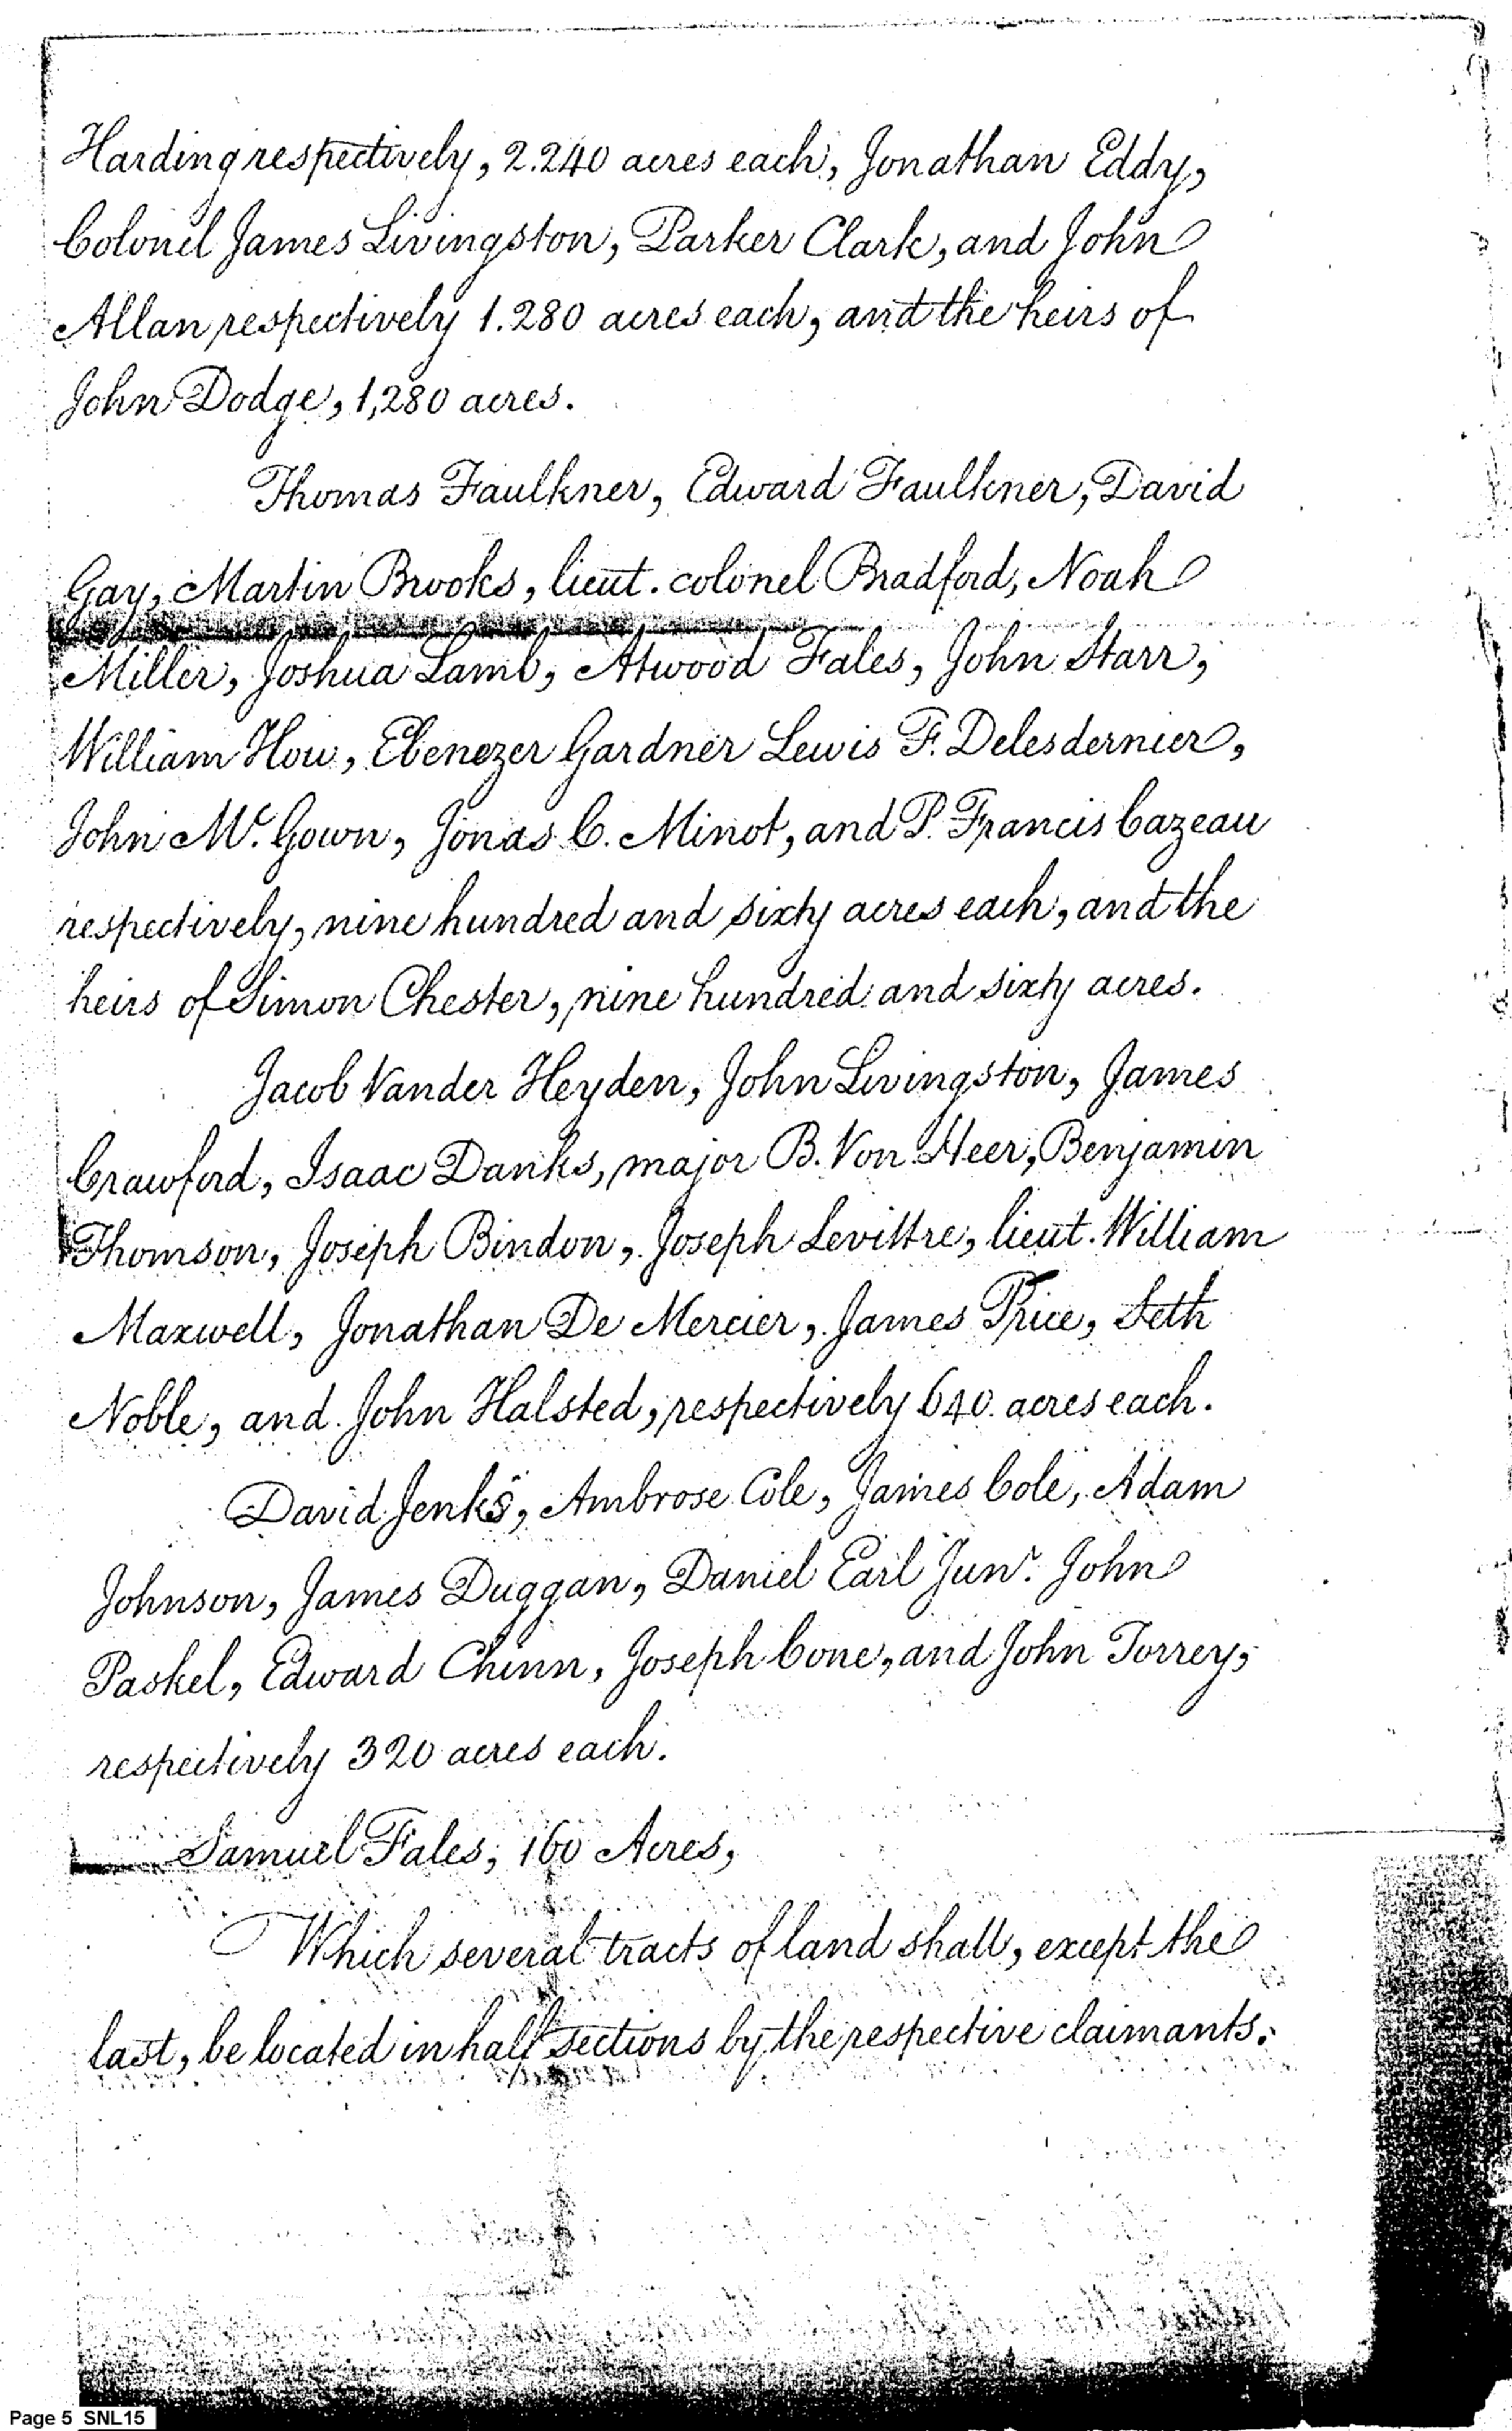 Harding respectively, 2.240 acres each, Jonathan Eddy,
Colonel James Livingston, Parker Clark, and John
Allan respectively 1.280 acres each, and the heirs of
John Dodge, 1,280 acres.
Thomas Faulkner, Edward Faulkner, David
Gay, Martin Brooks, lieut. colonel Bradford, Noah
Miller, Joshua Lamb, Atwood Fales, John Starr,
William How, Ebenezer Gardner Lewis F. Delesdernier,
John Mc. Gown, Jonas C. Minot, and P. Francis Cazeau
respectively, nine hundred and sixty acres each, and the
heirs of Simon Chester, nine hundred and sixty acres.
Jacob Vander Heyden, John Livingston, James
Crawford, Isaac Danks, major B. Von Heer, Benjamin
Thomson, Joseph Bindon, Joseph Levittre, lieut. William
Maxwell, Jonathan De Mercier, James Price, Seth
Noble, and John Halsted, respectively 640. acres each.
David Jenks, Ambrose Cole, James Cole, Adam
Johnson, James Duggan, Daniel Earl Junr. John
Paskel, Edward Chinn, Joseph Cone, and John Torrey,
respectively 320 acres each.
Samuel Fales, 160 Acres,
Which several tracts of land shall, except the
last, be located in half sections by the respective claimants.
Page 5 SNL15